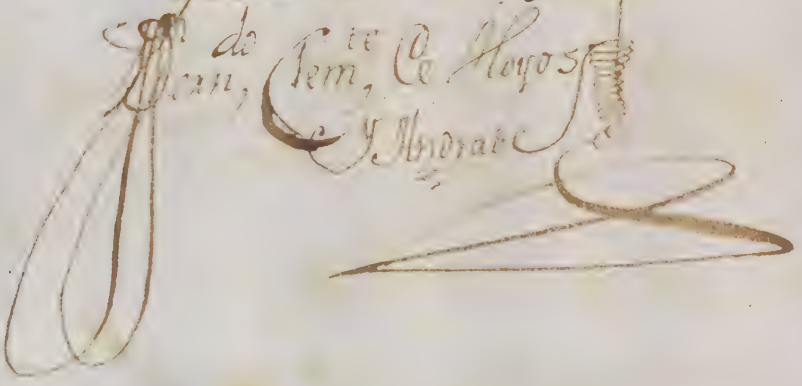 Fran,do Clem,te de Hoyos
y Andrade